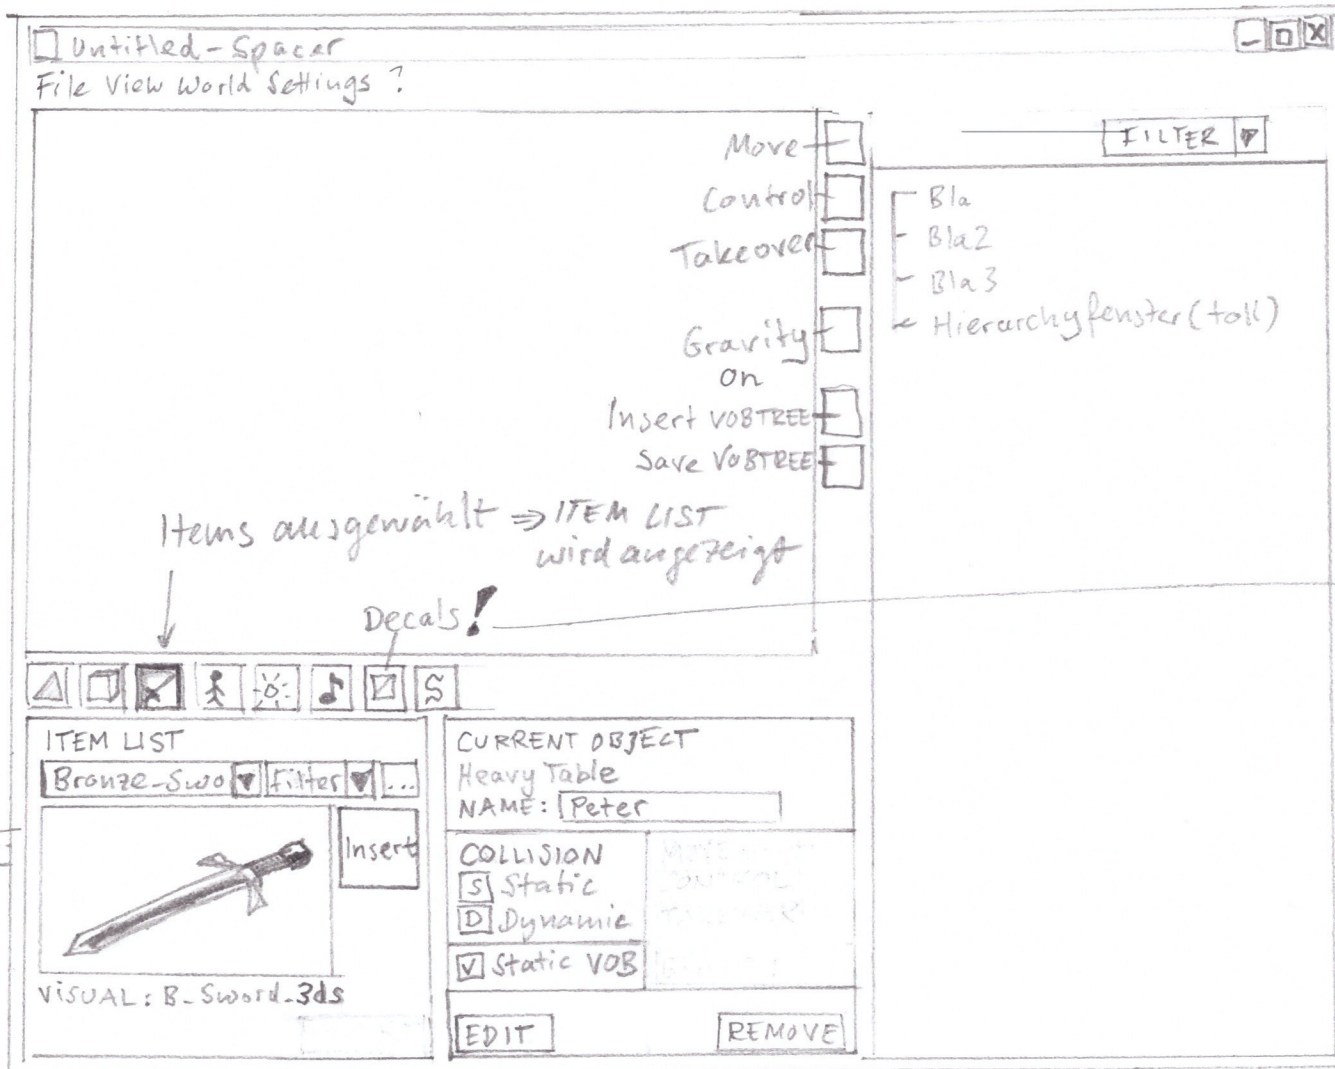 Untitled - Spacer
_ X
File View World Settings ?
FILTER
Move
Control
Takeover
Gravity
on
Insert VOBTREE
Save VOBTREE
Bla
Bla2
Bla3
Hierarchyfenster (toll)
Items ausgewählt => ITEM LIST
wird angezeigt
Decals!
S
ITEM LIST
Bronze_Swo Filter ...
Insert
VISUAL: B_Sword_3ds
CURRENT OBJECT
Heavy Table
NAME: Peter
COLLISION
S Static
D Dynamic
V Static VOB
EDIT REMOVE
MOVE
CONTROL
TAKEOVER